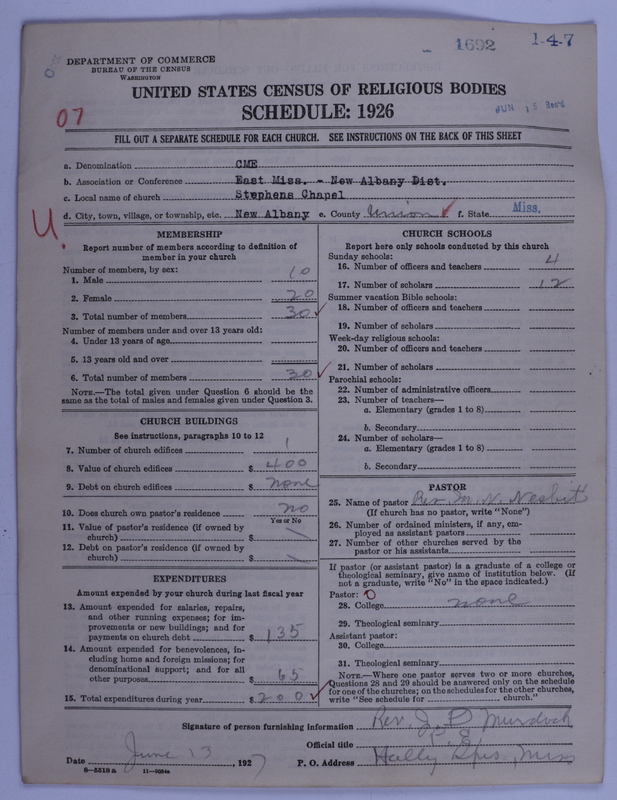 1692
1-4-7
DEPARTMENT OF COMMERCE
BUREAU OF THE CENSUS
WASHINGTON
UNITED STATES CENSUS OF RELIGIOUS BODIES
SCHEDULE: 1926
07
JUN 15
FILL OUT A SEPARATE SCHEDULE FOR EACH CHURCH. SEE INSTRUCTIONS ON THE BACK OF THIS SHEET
a. Denomination CME
b. Association or Conference East Miss. - New Albany Dist.
c. Local name of church Stephens Chapel
d. City, town, village, or township, etc. New Albany e. County Union f. State Miss.
U.
MEMBERSHIP
Report number of members according to definition of
member in your church
Number of members, by sex:
1. Male 10
2. Female 20
3. Total number of members 30
Number of members under and over 13 years old:
4. Under 13 years of age
5. 13 years old and over
6. Total number of members 30
NOTE.—The total given under Question 6 should be the
same as the total of males and females given under Question 3.
CHURCH BUILDINGS
See instructions, paragraphs 10 to 12
7. Number of church edifices 1
8. Value of church edifices $ 400
9. Debt on church edifices $ none
10. Does church own pastor's residence no
Yes or No
11. Value of pastor's residence (if owned by
church) $
12. Debt on pastor's residence (if owned by
church) $
EXPENDITURES
Amount expended by your church during last fiscal year
13. Amount expended for salaries, repairs,
and other running expenses; for im-
provements or new buildings; and for
payments on church debt $ 135
14. Amount expended for benevolences, in-
cluding home and foreign missions; for
denominational support; and for all
other purposes $ 65
15. Total expenditures during year $ 200
CHURCH SCHOOLS
Report here only schools conducted by this church
Sunday schools:
16. Number of officers and teachers 4
17. Number of scholars 12
Summer vacation Bible schools:
18. Number of officers and teachers
19. Number of scholars
Week-day religious schools:
20. Number of officers and teachers
21. Number of scholars
Parochial schools:
22. Number of administrative officers
23. Number of teachers—
a. Elementary (grades 1 to 8)
b. Secondary
24. Number of scholars—
a. Elementary (grades 1 to 8)
b. Secondary
PASTOR
25. Name of pastor Rev. M. N. Nesbit
(If church has no pastor, write "None")
26. Number of ordained ministers, if any, em-
ployed as assistant pastors
27. Number of other churches served by the
pastor or his assistants
If pastor (or assistant pastor) is a graduate of a college or
theological seminary, give name of institution below. (If
not a graduate, write "No" in the space indicated.)
Pastor: 0
28. College none
29. Theological seminary
Assistant pastor:
30. College
31. Theological seminary
NOTE.—Where one pastor serves two or more churches,
Questions 28 and 29 should be answered only on the schedule
for one of the churches; on the schedules for the other churches,
write "See schedule for church."
Signature of person furnishing information Rev. J. D. Murdock
Official title P E
Date June 13, 1927 P. O. Address Holly Spgs, Miss
8—5518a 11—9034a